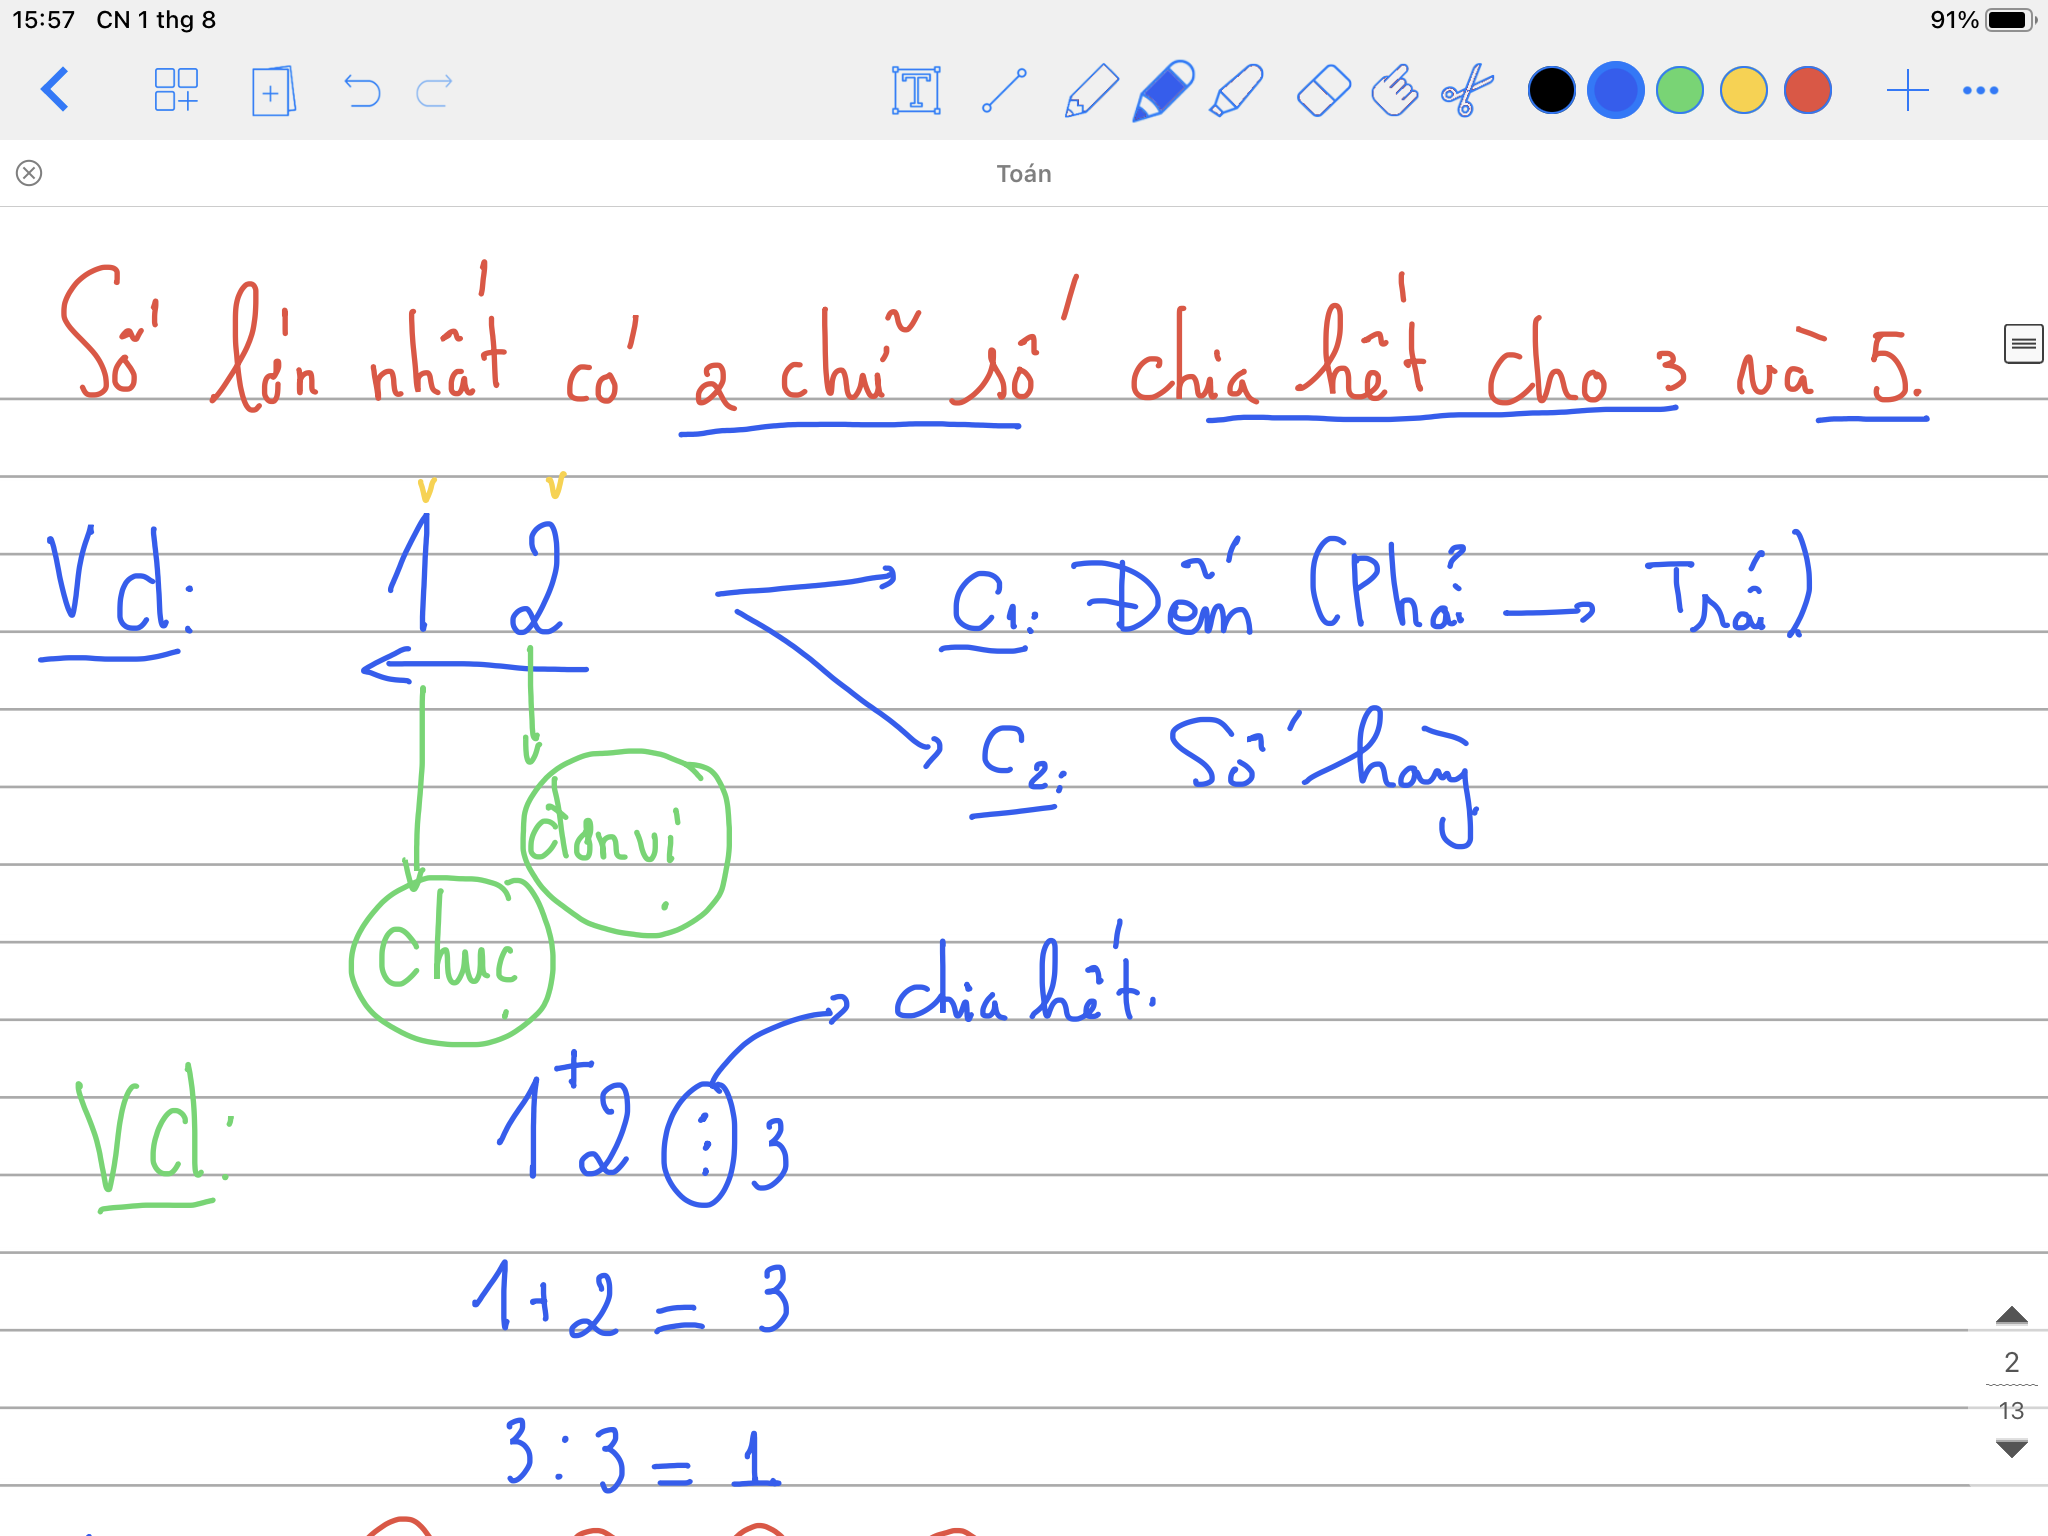 15:57 CN 1 thg 8 91%
Toán
Số lớn nhất có 2 chữ số chia hết cho 3 và 5.
Vd: 1 2 → C1: Đếm (Phải → Trái)
C2: Số hàng
đơn vị
chục
chia hết.
Vd: 1 + 2 ⋮ 3
1 + 2 = 3
2
13
3 : 3 = 1